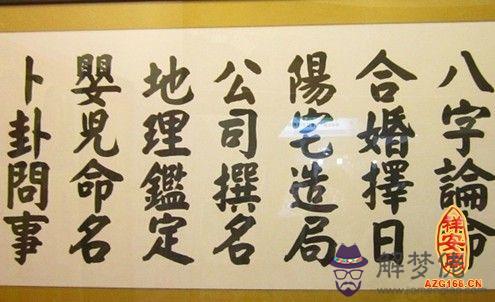 八字論命
合婚擇日
陽宅造局
公司撰名
地理鑑定
嬰児命名
卜卦問事
祥安阁
AZG168.CN
解梦佬